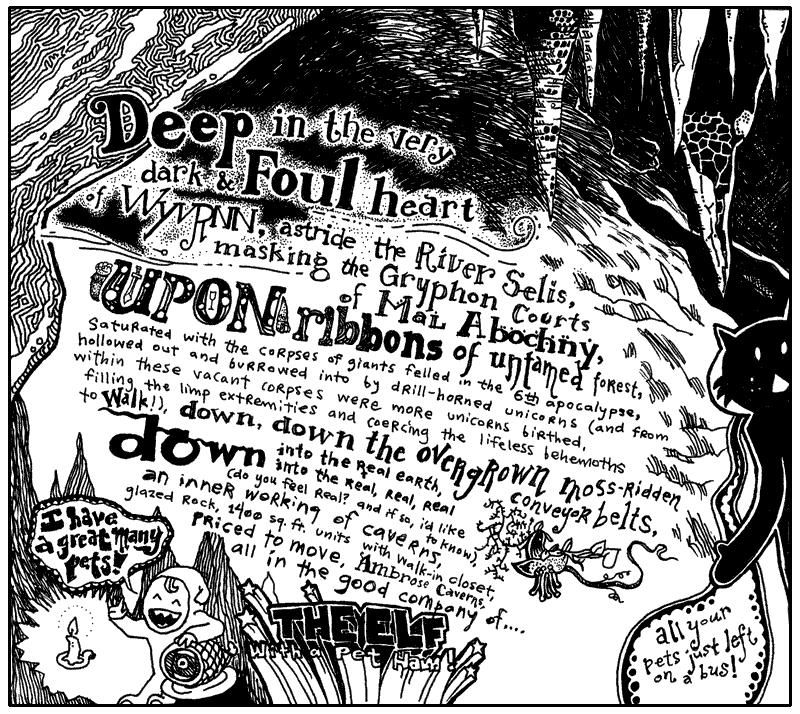 Deep in the very
dark & Foul heart
of WYVRNN, astride the River Selis,
masking the Gryphon Courts
of Mal Abochny,
UPON ribbons of untamed forest,
Saturated with the corpses of giants felled in the 6th apocalypse,
hollowed out and burrowed into by drill-horned unicorns (and from
within these vacant corpses were more unicorns birthed,
filling the limp extremities and coercing the lifeless behemoths
to Walk!), down, down the overgrown moss-ridden
conveyor belts,
down into the real earth,
into the real, real, real
(do you feel real? and if so, i'd like
to know),
an inner working of caverns,
glazed rock, 1400 sq. ft. units with walk-in closet,
priced to move, Ambrose Caverns,
all in the good company of....
I have
a great many
pets!
THE ELF
with a Pet Ham!
all your
pets just left
on a bus!